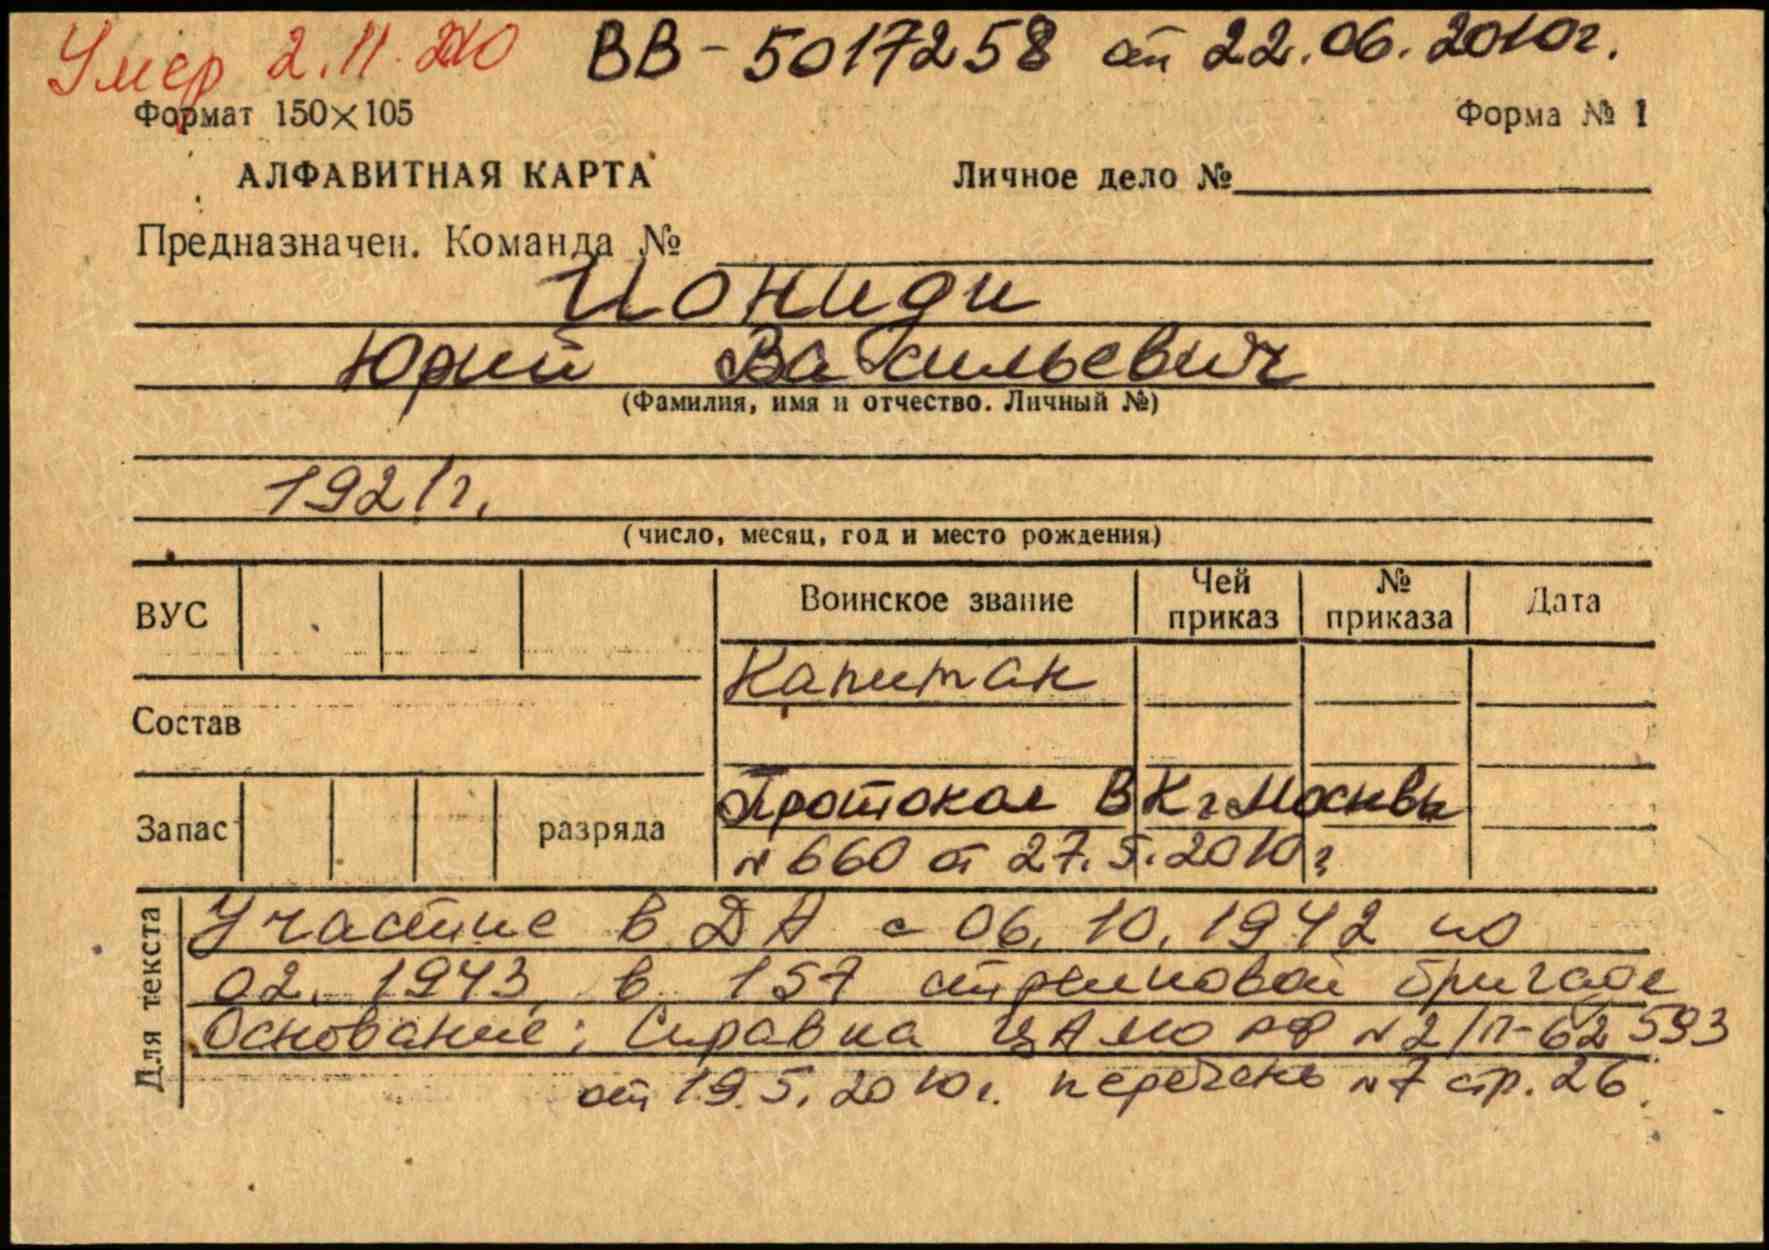 Умер 2.11.2010 ВВ-5017258 от 22.06.2010г.
Формат 150×105 Форма № 1
АЛФАВИТНАЯ КАРТА Личное дело №
Предназначен. Команда №
Иониди
Юрий Васильевич
(Фамилия, имя и отчество. Личный №)
1921г.
(число, месяц, год и место рождения)
ВУС Воинское звание Чей приказ № приказа Дата
Капитан
Состав
Протокол ВК г Москвы
Запас разряда
№ 660 от 27.5.2010г
Для текста
Участие в ДА с 06.10.1942 по
02.1943 в 157 стрелковой бригаде
Основание: Справка ЦАМО РФ №2/П-62593
от 19.5.2010г. перечень №7 стр. 26.